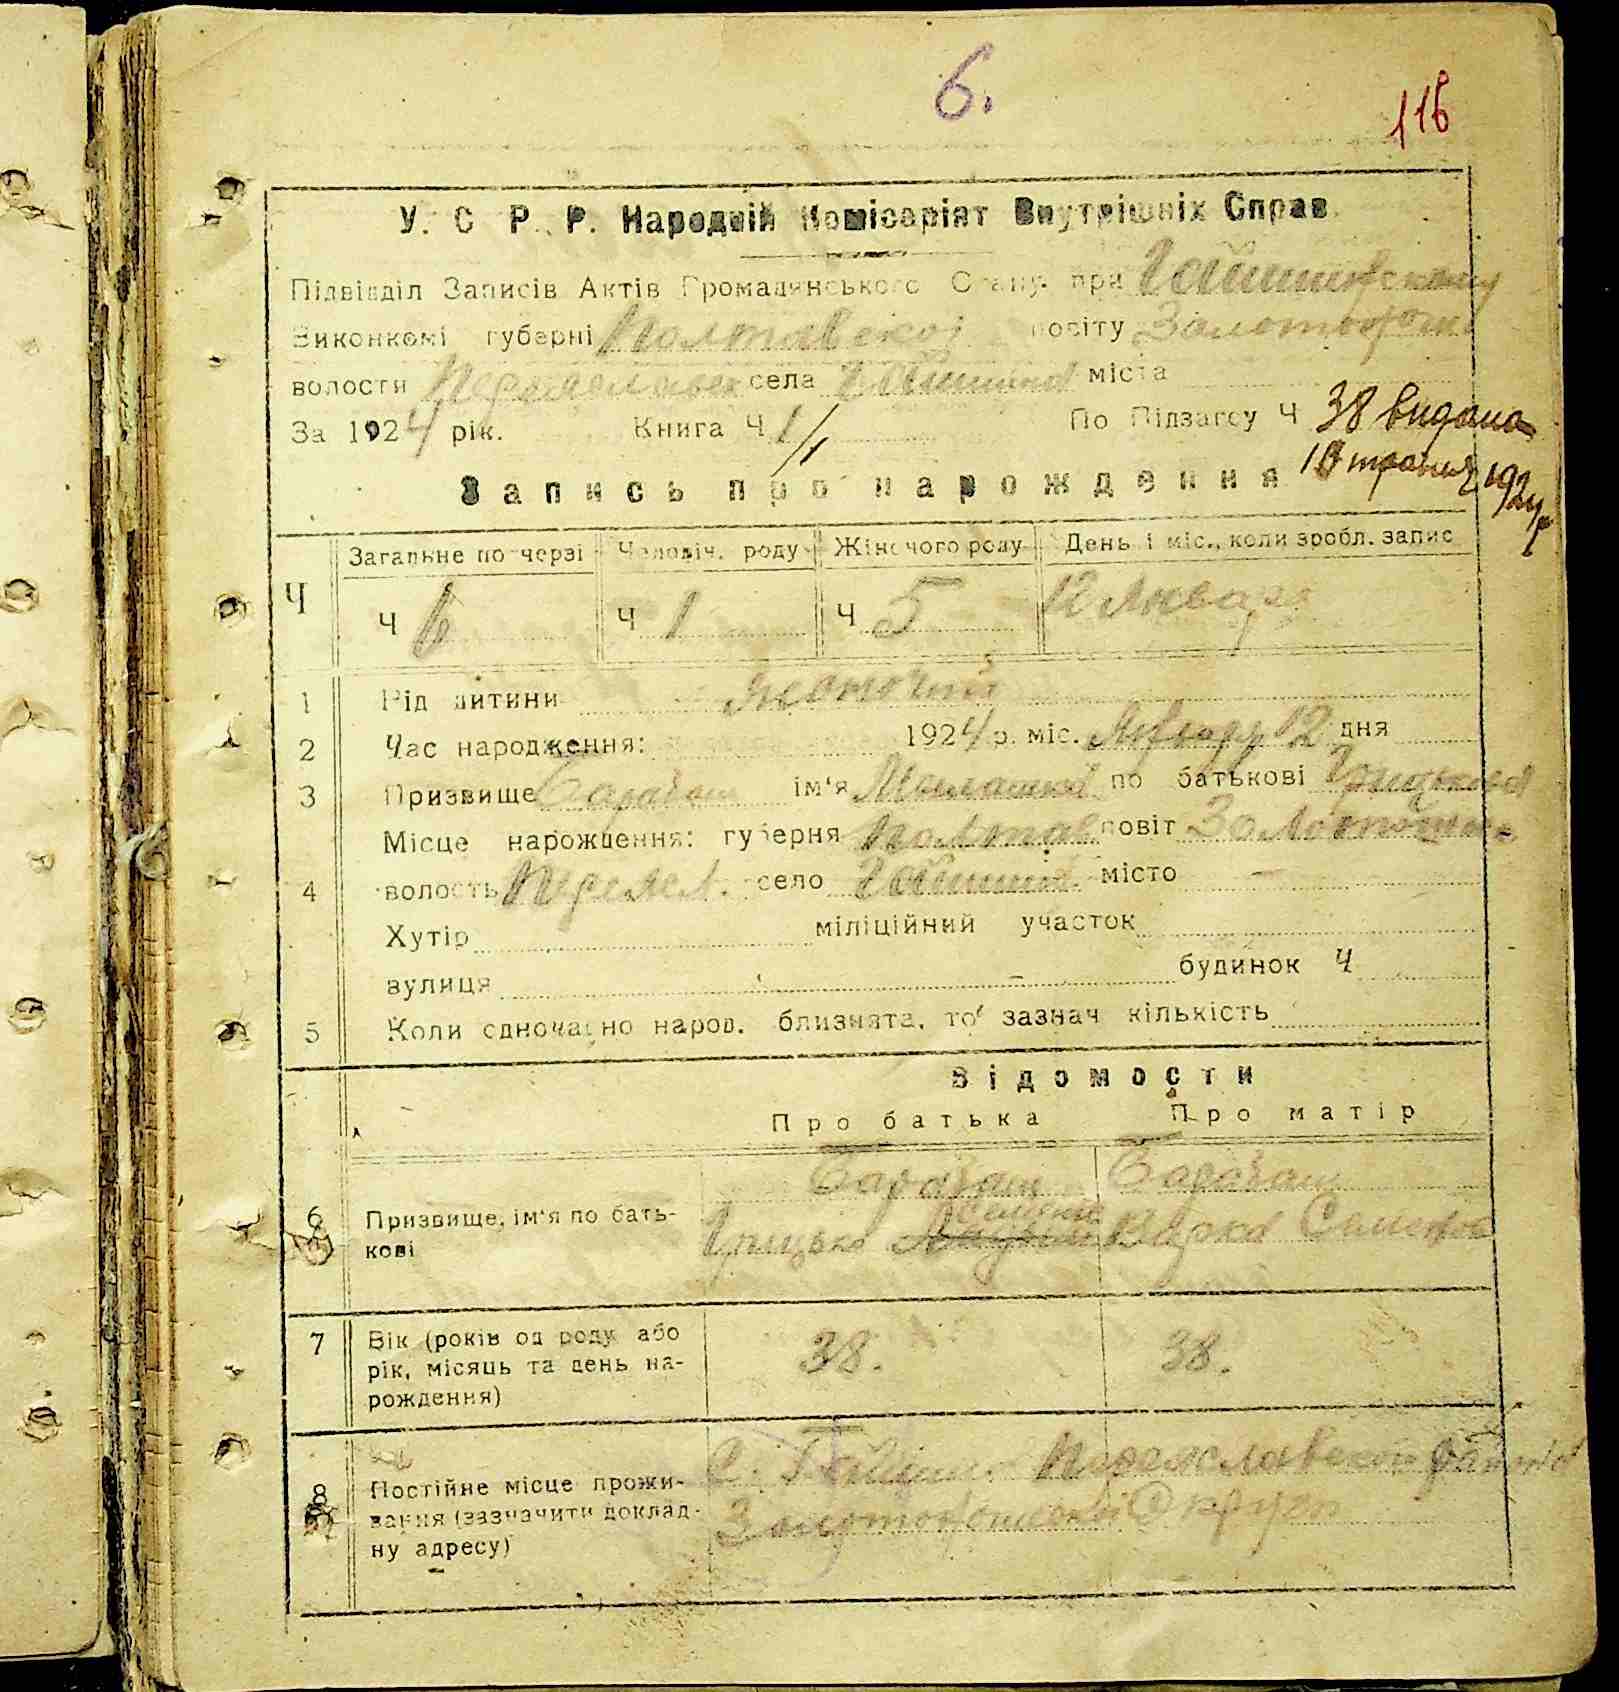 6.
116
У. С. Р. Р. Народній Комісаріят Внутрішніх Справ.
Підвідділ Записів Актів Громадянського Стану при Гайшинскому
Виконкомі губерні Полтавскої повіту Золотонош
волости села Гайшина міста
За 1924 рік. Книга Ч 1/1 По Підзагсу Ч 38 видана
Запись про народження 10 травня 1924 р
Загальне по черзі Чоловіч. роду Жіночого роду День і міс., коли зробл. запис
Ч Ч 6 Ч 1 Ч 5 12 Января
1 Рід дитини
2 Час народження: 1924 р. міс. Января 12 дня
3 Призвище Барабаш ім'я Малашка по батькові Грицькова
Місце нарождення: губерня Полтав повіт Золотонош
4 волость Переясл. село Гайшин місто -
Хутір міліційний участок
вулиця - будинок Ч
5 Коли єдночасно народ. близнята, то зазнач кількість
Відомости
Про батька Про матір
Барабаш Барабаш
6 Призвище, ім'я по бать- Семенов
кові Грицько Варка Семенов
7 Вік (років од роду або 38. 38.
рік, місяць та день на-
рождення)
С. Гайшин Переяславской району
8 Постійне місце прожи-
вання (зазначити доклад- Золотоношскої Округи
ну адресу)